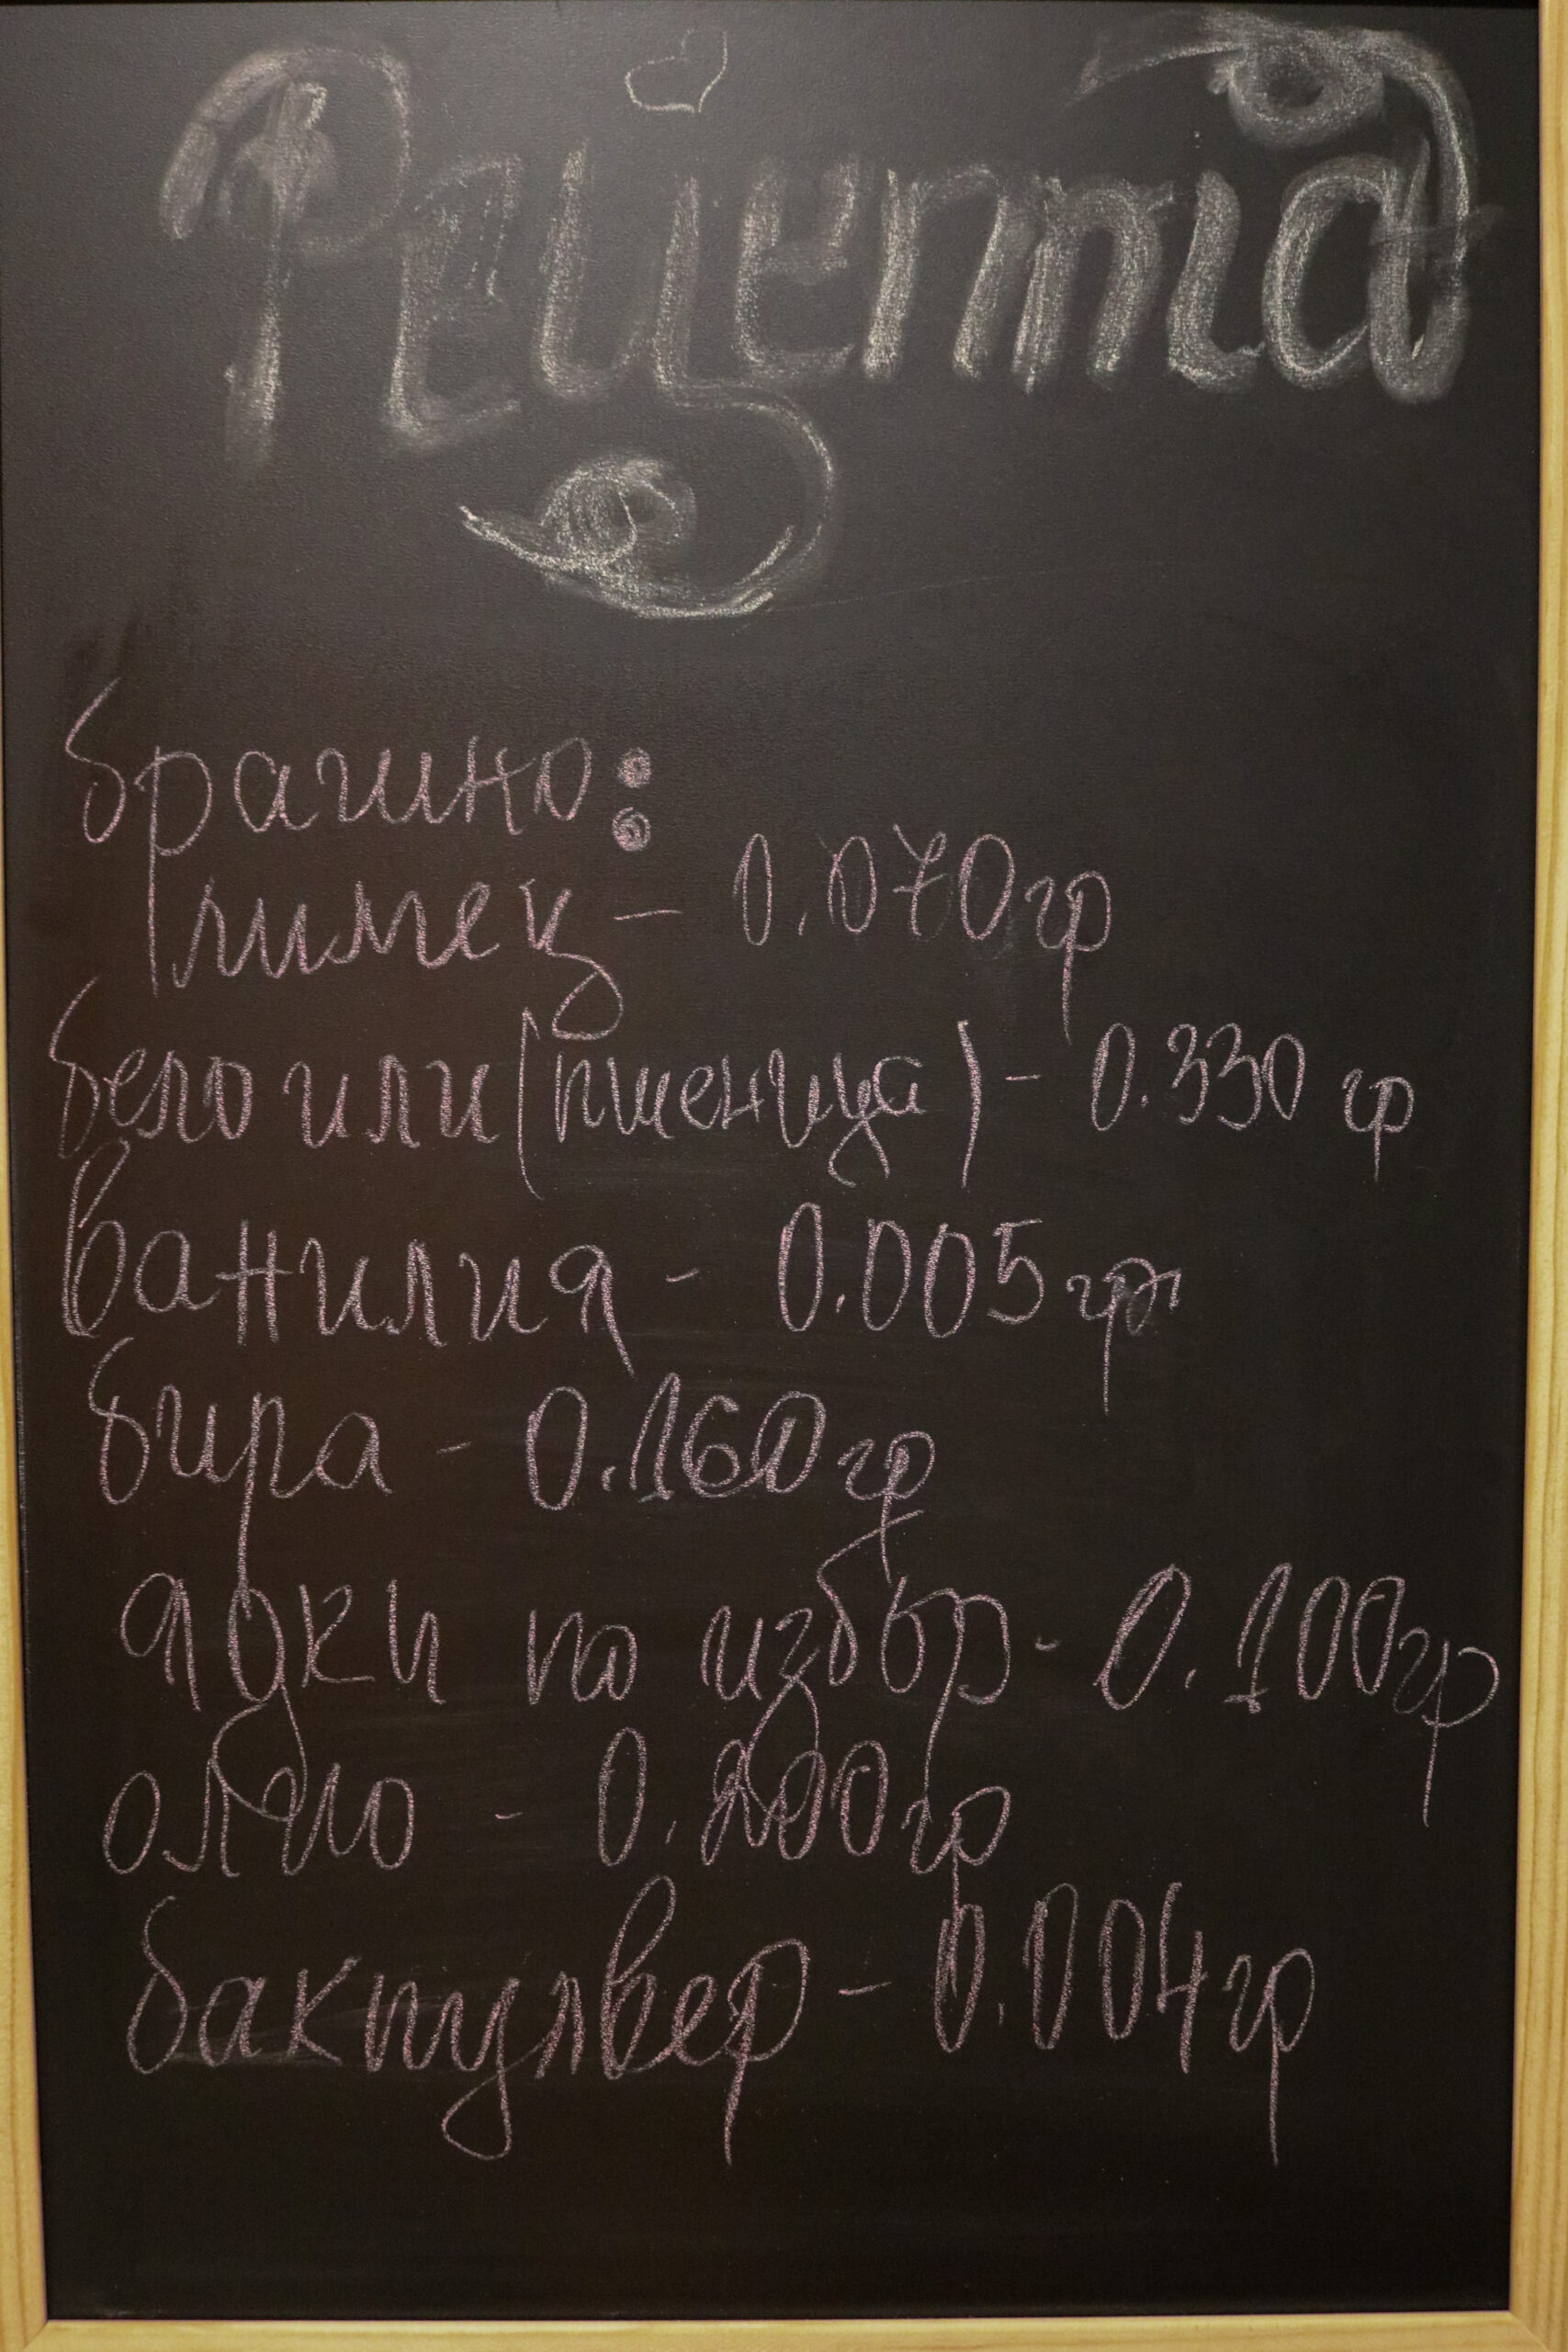 Рецепта
брашно:
лимец - 0.070гр
бело или (пшеница) - 0.330 гр
ванилия - 0.005гр
бира - 0.160гр
ядки по избор - 0.100гр
олио - 0.200гр
бакпулвер - 0.004гр